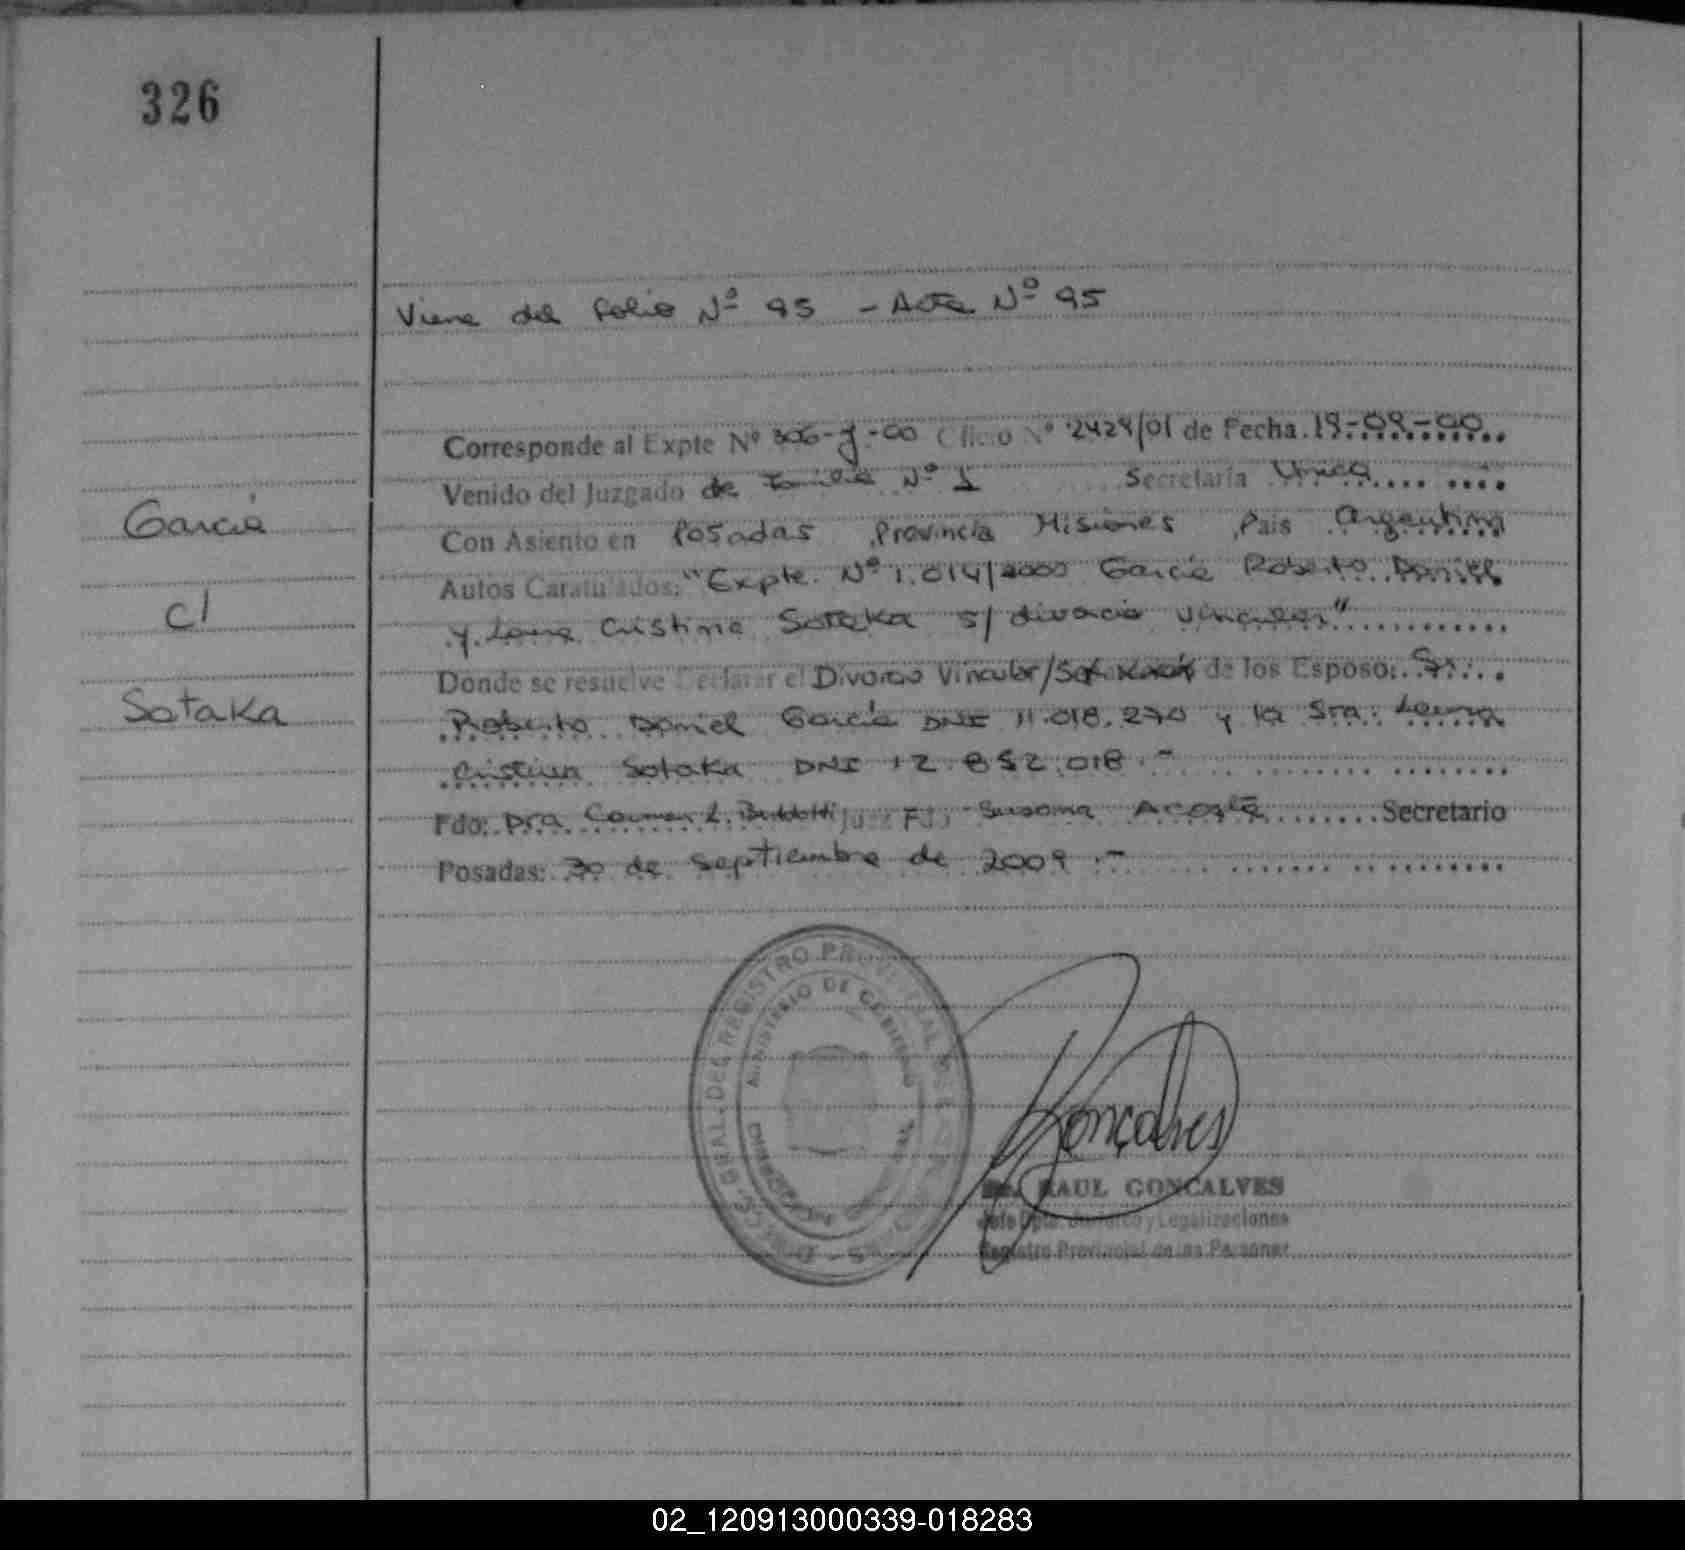 326
Viene del folio Nº 95 - Acta Nº 95
Corresponde al Expte Nº 306-J-00 Oficio Nº 2424/01 de Fecha. 19-09-00
Venido del Juzgado de Familia Nº 1 Secretaría Unica
García
Con Asiento en Posadas Provincia Misiones País Argentina
Autos Caratulados: "Expte. Nº 1.014/2000 García Roberto Daniel
c/
y Laura Cristina Sotaka s/ divorcio vincular"
Donde se resuelve Declarar el Divorcio Vincular/ de los Esposo: Sr.
Sotaka
Roberto Daniel García DNI 11.018.270 y la Sra: Laura
Cristina Sotaka DNI 12.852.018.-
Fdo: Dra Carmen L. Juez Fdo Susana Acosta Secretario
Posadas: 30 de Septiembre de 2009.-
DIREC. GRAL. DEL REGISTRO PROVINCIAL DE LAS PERSONAS
MINISTERIO DE GOBIERNO
Goncalves
Dr. RAUL GONCALVES
Jefe Dpto. y Legalizaciones
Registro Provincial de las Personas
02_120913000339-018283